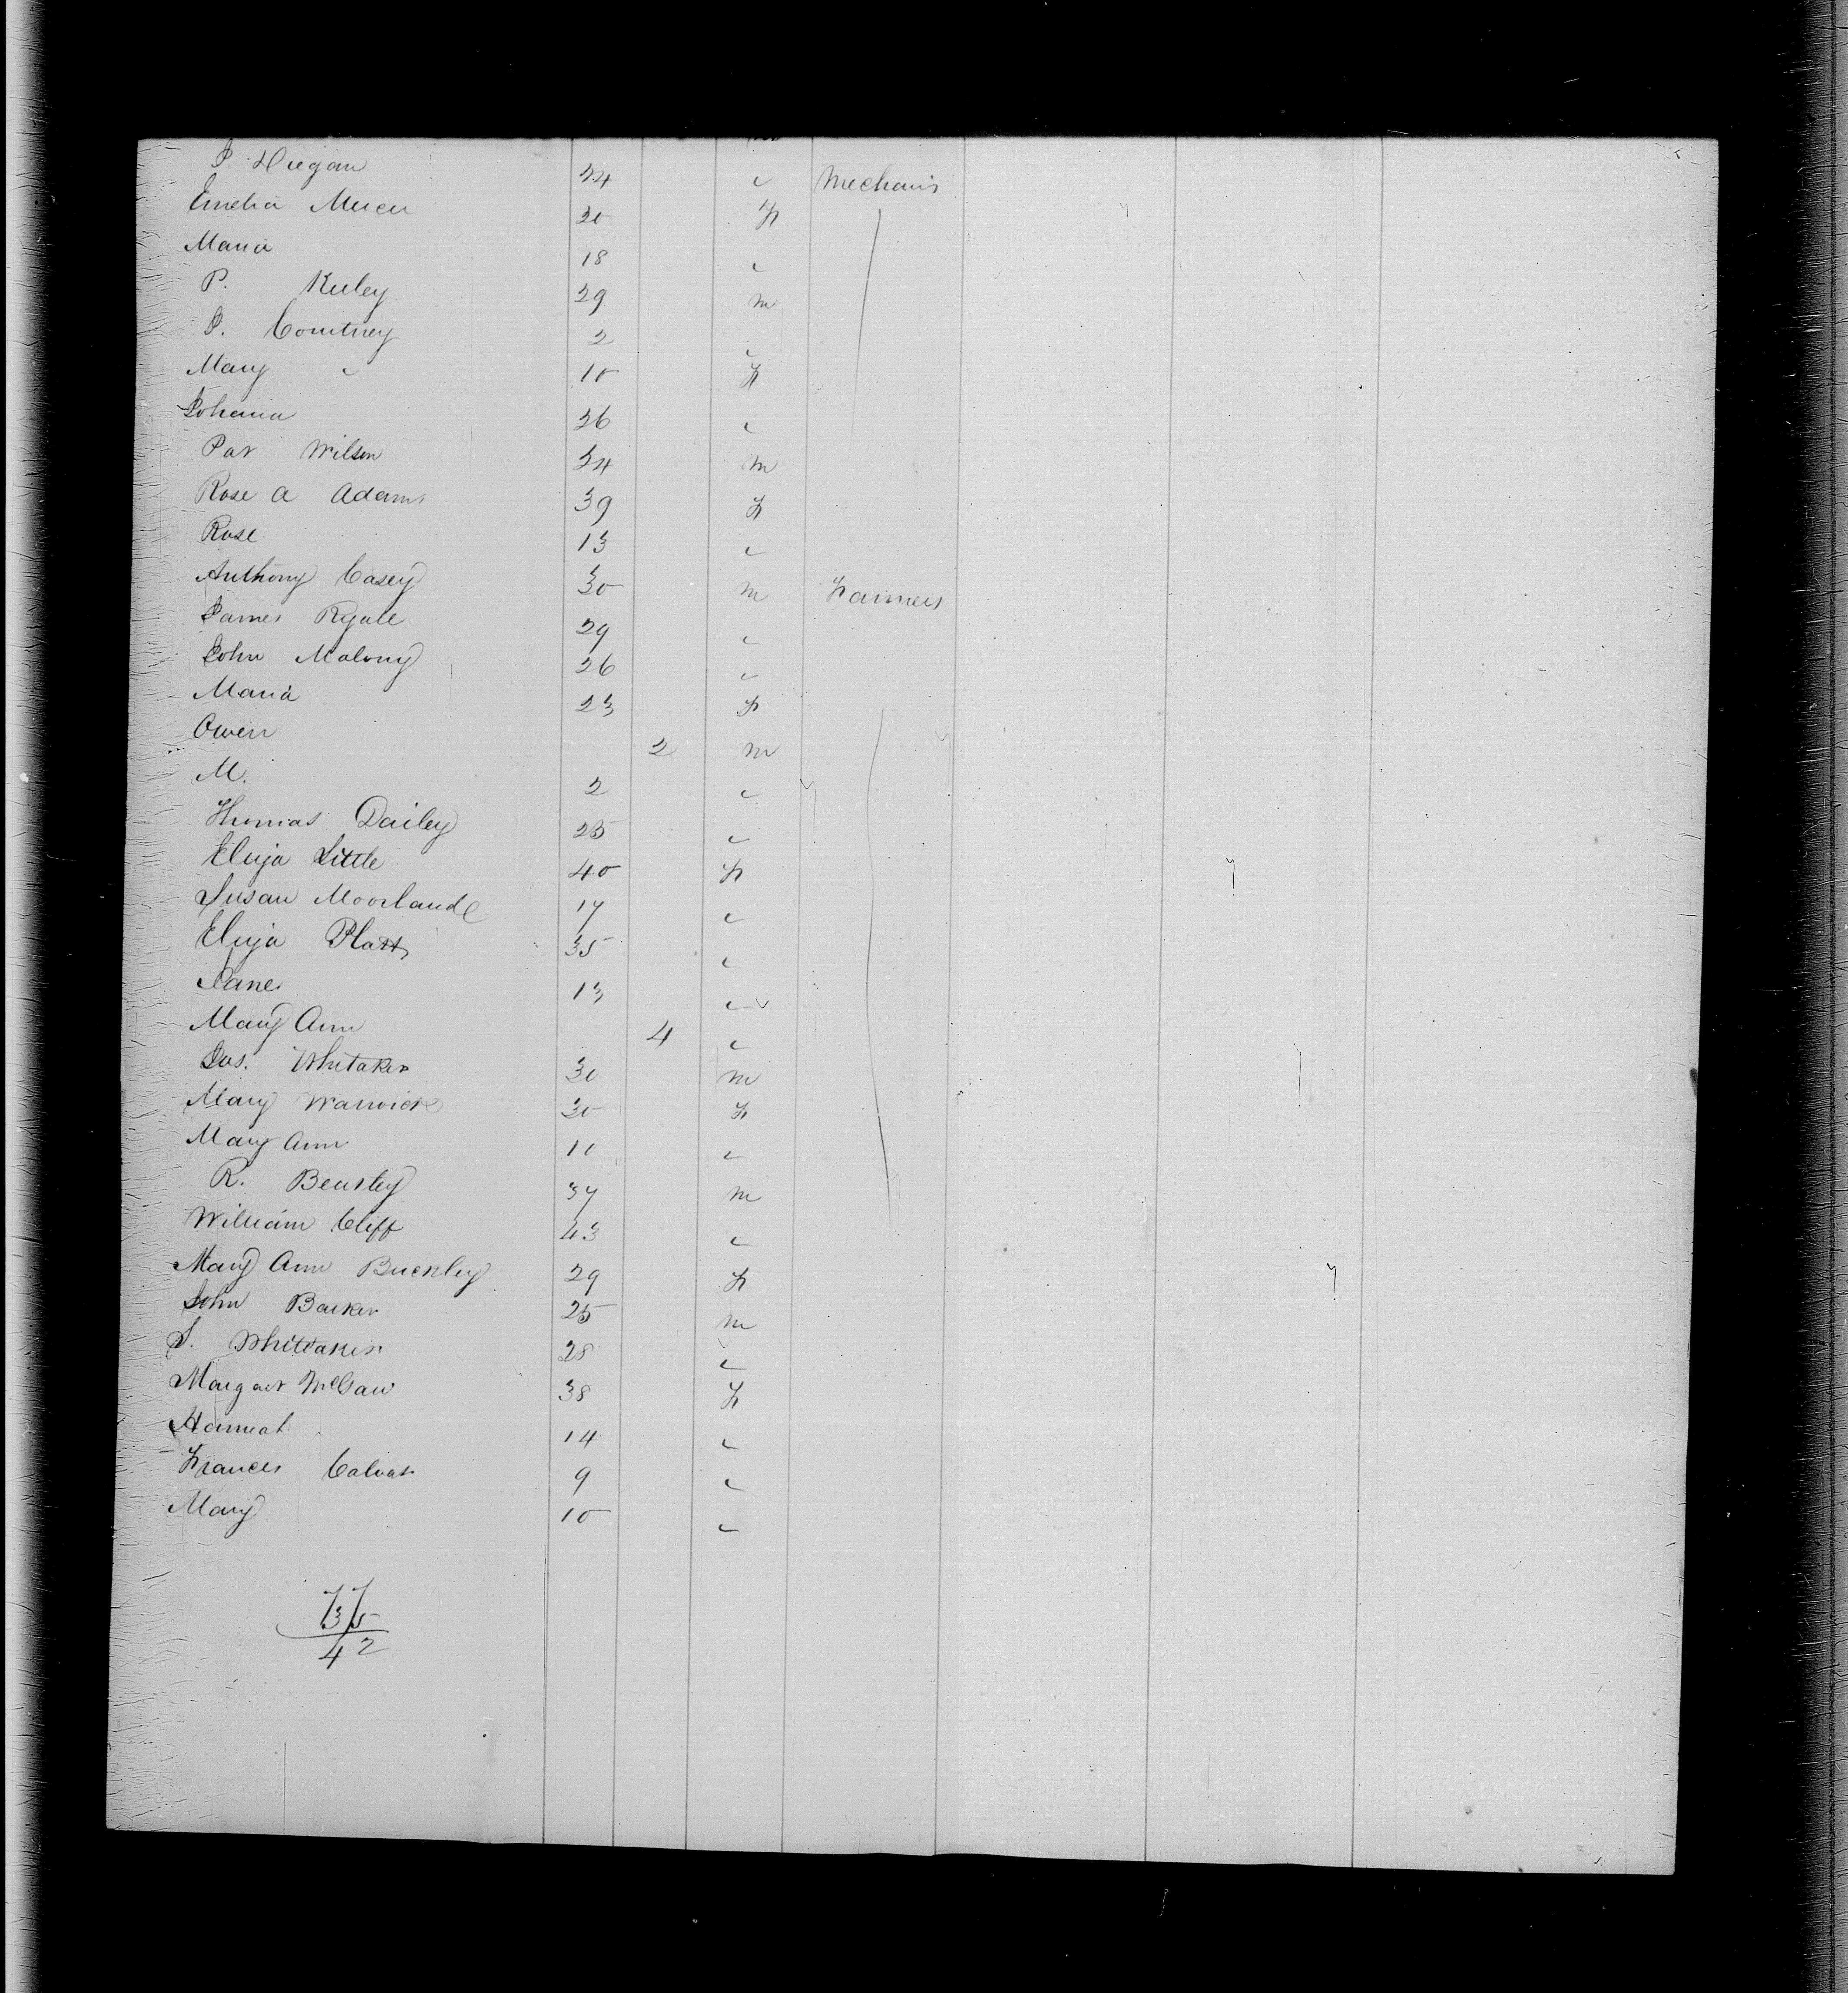 24 " Mechanis
Emelia Mercer 20 F
Maria 18 "
P. Kuley 29 M
J. Courtney 2 "
Mary " 10 F
Johana 26 "
Pat Wilson 24 M
Rose A Adams 39 F
Rose 13 "
Anthony Casey 30 M Farmers
James Ryale 29 "
John Malony 26 "
Maria 23 F
Owen 2 M
M. 2 "
Thomas Dailey 25 "
Eliza Little 40 F
Susan Moorland 17 "
Eliza Platt 35 "
Jane 13 "
Mary Ann 4 "
Jas. Whitaker 30 M
Mary Warwick 30 F
Mary Ann 10 "
R. 37 M
William Cliff 43 "
Mary Ann Buckley 29 F
John Barker 25 M
S. Whittaker 28 "
Margaret McGaw 38 F
Hannah 14 "
Frances Calvat 9 "
Mary 10 "
42